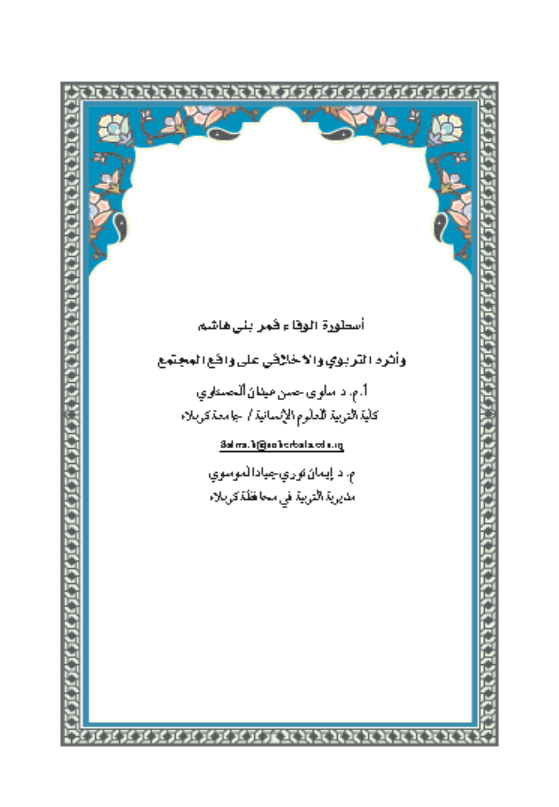 أسطورة الوفاء قمر بني هاشم
وأثره التربوي والاخلاقي على واقع المجتمع
أ. م. د سلوى حسن عيدان الحسناوي
كلية التربية للعلوم الإنسانية / جامعة كربلاء
م. د إيمان نوري جياد الموسوي
مديرية التربية في محافظة كربلاء